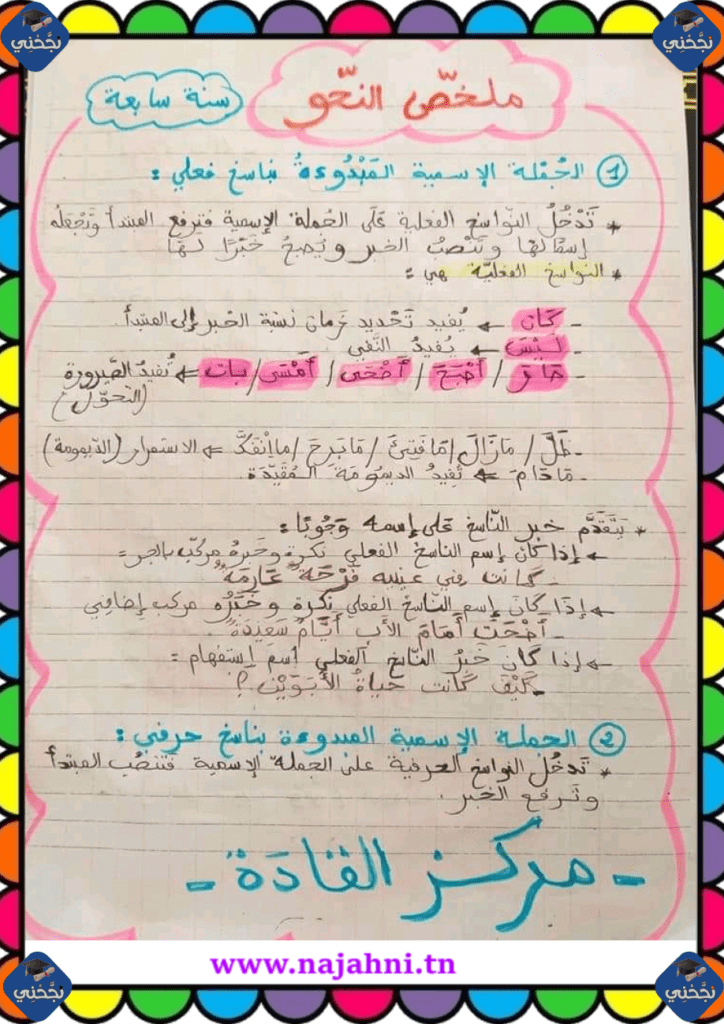 نجّحني
نجّحني
ملخّص النحو
سنة سابعة
1 الجُملة الإسمية المَبْدُوءةُ بناسخ فعلي :
* تَدْخُلُ النّواسخ الفعلية على الجُملة الإسمية فترفع المبتدأ وتَجْعَلُه
إسمًا لها وتَنْصبُ الخبر ويُصبحُ خَبَرًا لها
* النواسخ الفعليّة هي :
- كَانَ ← يُفيد تَحْديد زمان نسبة الخبر إلى المبتدأ.
- لَيْسَ ← يُفيدُ النّفي
- صَارَ / أَصْبَحَ / أَضْحَى / أَمْسَى / بات ⇐ تُفيدُ الصّيرورة
(التّحوّل)
- ظَلَّ / مَا زَالَ / مَا فَتِئَ / مَا بَرِحَ / ما اِنْفَكَّ ⇐ الاستمرار (الدّيمومة)
- مَادَامَ ⇐ تُفيدُ الديمُومَة المُقَيّدَة.
* يَتَقَدَّم خبر النّاسخ على إسمه وُجُوبًا :
← إذا كان إسم الناسخ الفعلي نكرة وخبرهُ مركّب بالجر =
- كانت في عينيه فَرْحَةٌ عَارِمَةٌ
← إذَا كَانَ إسم النّاسخ الفعلي نكرة وخَبَرُه مركب إضافي
- أَضْحَتْ أَمَامَ الأب أَيَّامٌ سَعِيدَةٌ.
← إذا كَانَ خَبَرُ النّاسخ الفعلي اسمَ اِستفهام =
- كَيْفَ كَانت حَيَاةُ الأَبَوَيْنِ ؟
2 الجملة الإسمية المبدوءة بناسخ حرفي :
* تَدْخُلُ النواسخ الحرفية على الجملة الإسمية فتنصُب المبتدأ
وتَرفع الخبر.
- مركز القادَة -
www.najahni.tn
نجّحني
نجّحني